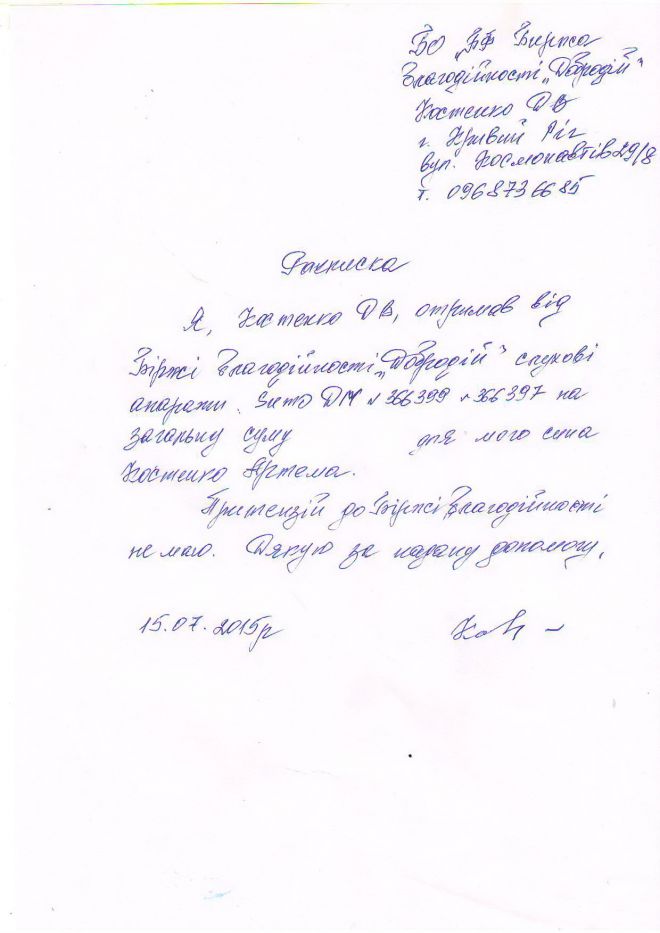 БО „БФ Биржа
Благодійності „Добродій"
Костенко ДВ
г. Кривий Ріг
вул. Космонавтів 29/8
т. 0968736685
Расписка
Я, Костенко ДВ, отримав від
Біржі Благодійності „Добродій" слухові
апарати Sumo DM № 366399 № 366397 на
загальну суму для мого сина
Костенко Артема.
Притензій до Біржі Благодійності
не маю. Дякую за надану допомогу.
15.07.2015р